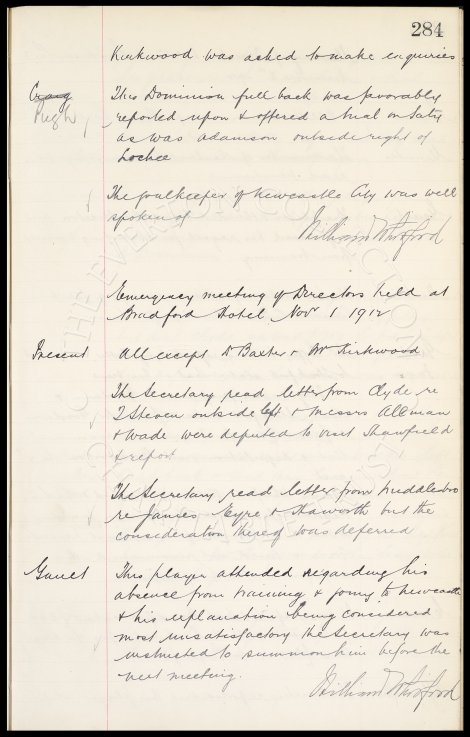 284
Kirkwood was asked to make enquiries
Craig
Pugh
This Dominion full back was favorably
reported upon & offered a trial on Saty
as was adamson outside right of
Lochee
The goalkeeper of Newcastle City was well
spoken of
William Whitford
Emergency meeting of Directors held at
Bradford Hotel Nov 1 1912
Present All except Dr Baxter & Mr Kirkwood
The Secretary read letter from Clyde re
T Steven outside left & Messrs Allman
& Wade were deputed to visit Shawfield
& report
The Secretary read letter from Middlesboro
re James Eyre & Haworth but the
consideration thereof was deferred
Gault This player attended regarding his
absence from training & going to Newcastle
& his explanation being considered
most unsatisfactory the Secretary was
instructed to summon him before the
next meeting.
William Whitford